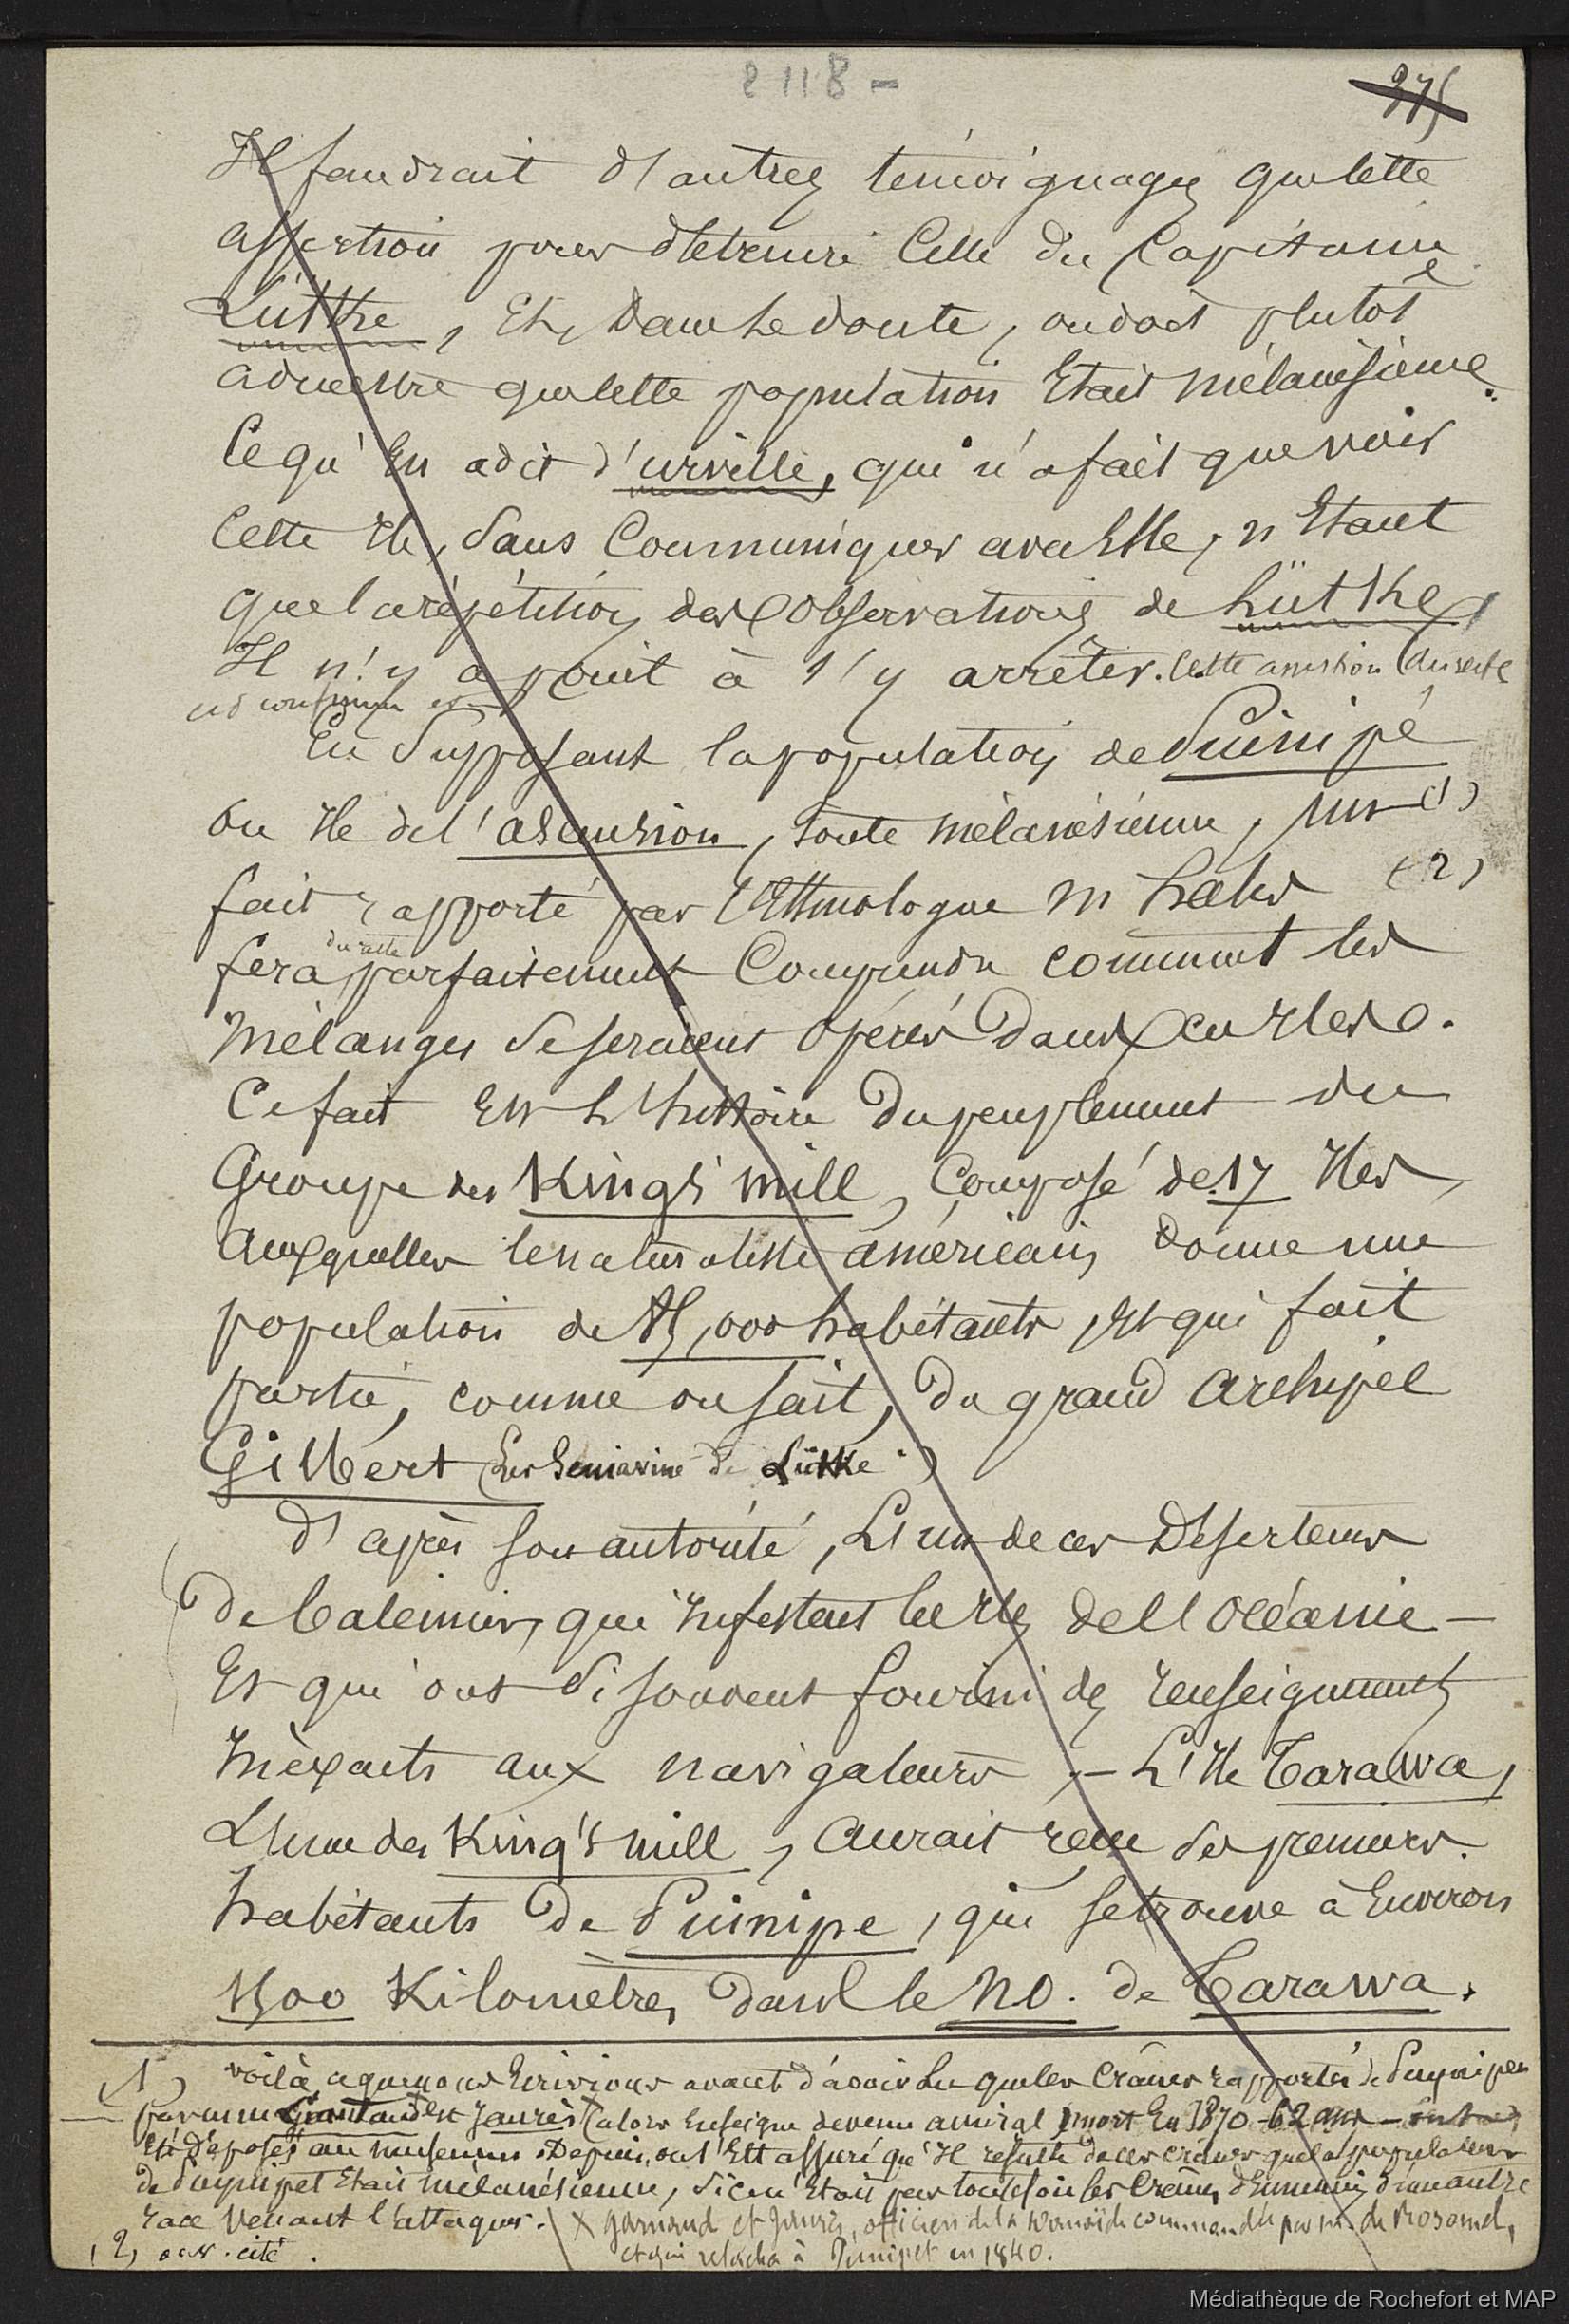 2118 -
375
Il faudrait d'autres témoignages que cette
assertion pour détruire celle du Capitaine
Lütke, Et, Dans le doute, on doit plutôt
admettre que cette population Etait mélanésienne.
Ce qu'en a dit d'urville, qui n'a fait que voir
Cette Ile, Sans Communiquer avec Elle, n'Etant
que la répétition des observations de Lütke,
Il n'y a point à s'y arrêter. Cette assertion du reste
est confirmée
En Supposant la population de Puinipé
ou Ile de l'ascension, toute mélanésienne, (1)
fait rapporté par l'Ethnologue m hales (2)
fera du reste parfaitement Comprendre comment les
Mélanges se seraient opérés Dans ces Iles.
Ce fait Est l'histoire du peuplement du
Groupe des King's mill, Composé de 17 Iles,
Auxquelles le naturaliste américain, donne une
population de 15,000 habitants, Et qui fait
partie, comme on sait, du grand archipel
Gilbert (Les Seniavine de Lütke)
D'après son autorité, L'un de ces Déserteurs
De baleiniers, qui infestent les Iles de l'océanie —
Et qui ont si souvent fourni des renseignements
Inéxacts aux navigateurs, — L'Ile Tarawa,
L'une des King's mill, aurait reçu ses premiers
habitants de Puinipe, qui se trouve à Environ
1500 Kilomètres, dans le NO. de Tarawa.
(1) voilà ce que nous Ecrivions avant d'avoir lu que les Crânes rapportés de Puynipet
par mm Et Jaurès (alors Enseigne devenu amiral mort En 1870 - 62 ans -
Eté déposés au museum. Depuis, on s'Est assuré qu'Il résulte de ces crânes que la population
de Puynipet Etait mélanésienne, si ce n'Etait pas toutefois les Crânes d'Ennemis d'une autre
race Venant l'attaquer. X Garnaud et Jaurès, officiers de la Danaïde commandée par m. de Rosamel,
et qui relâcha à Puinipet en 1840.
(2) ouv. cité.
Médiathèque de Rochefort et MAP